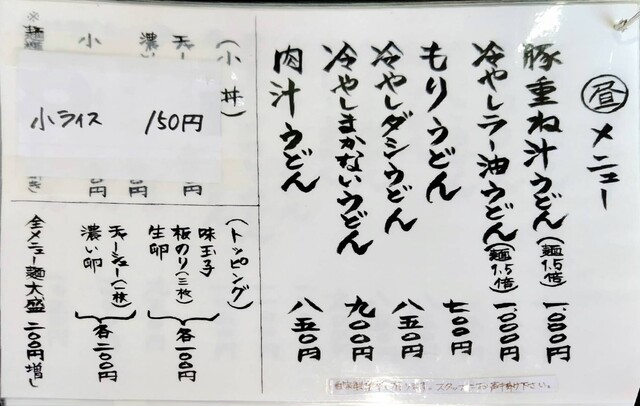 昼メニュー
豚重ね汁うどん(麺1.5倍) 一、〇〇〇円
冷やしラー油うどん(麺1.5倍) 一、〇〇〇円
もりうどん 七〇〇円
冷やしダシうどん 八五〇円
冷やしまかないうどん 九〇〇円
肉汁うどん 八五〇円
(小丼)
チャー
濃い
小
小ライス 150円
(トッピング)
味玉子
板のり(三枚)
生卵
各一〇〇円
チャーシュー(一枚)
濃い卵
各二〇〇円
全メニュー麺大盛 二〇〇円増し